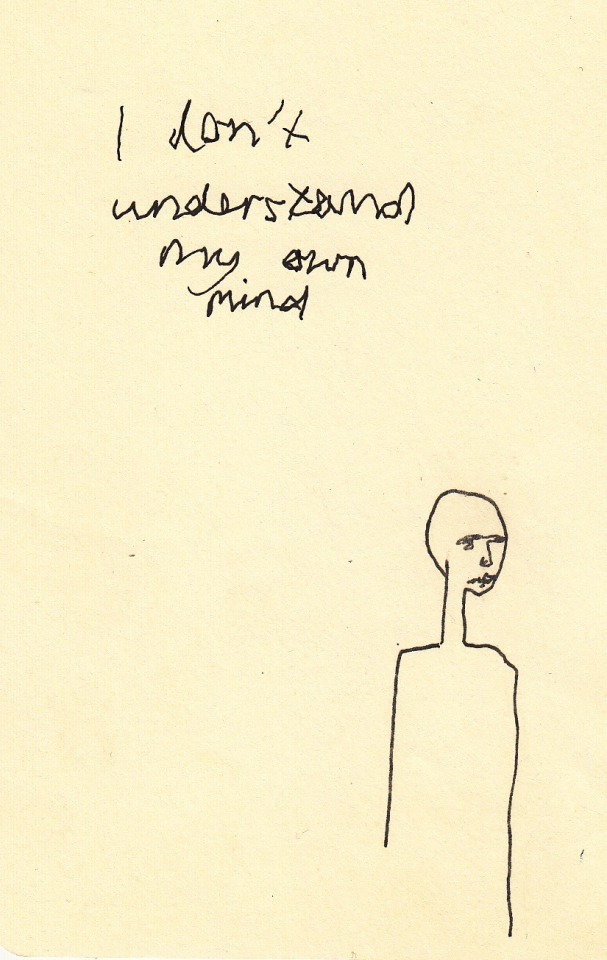 I don't
understand
my own
mind